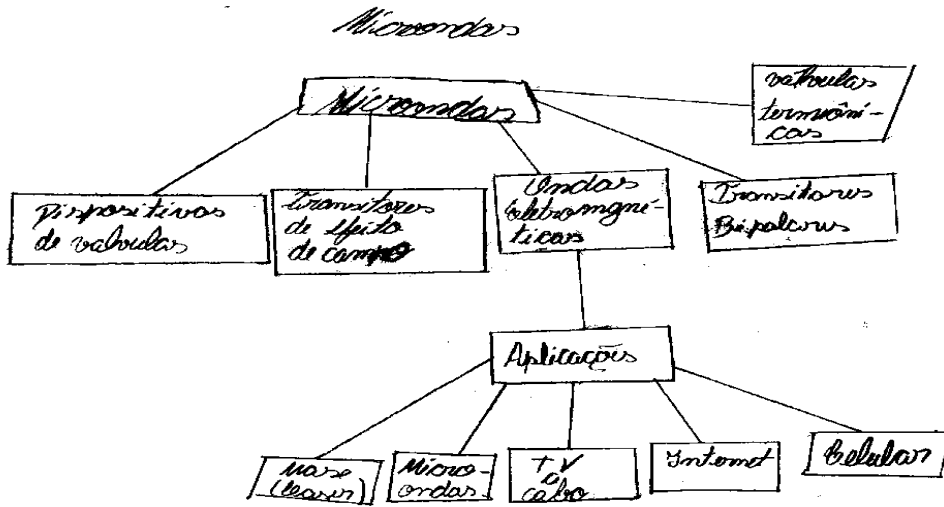 Microondas
Microondas
valvulas
termiôni-
cas
Dispositivos
de valvulas
transitores
de Efeito
de campo
Ondas
eletromgné-
ticas
Transitores
Bipalorus
Aplicações
Mase
(leaser)
Micro-
ondas
TV
a
cabo
Internet
Celular